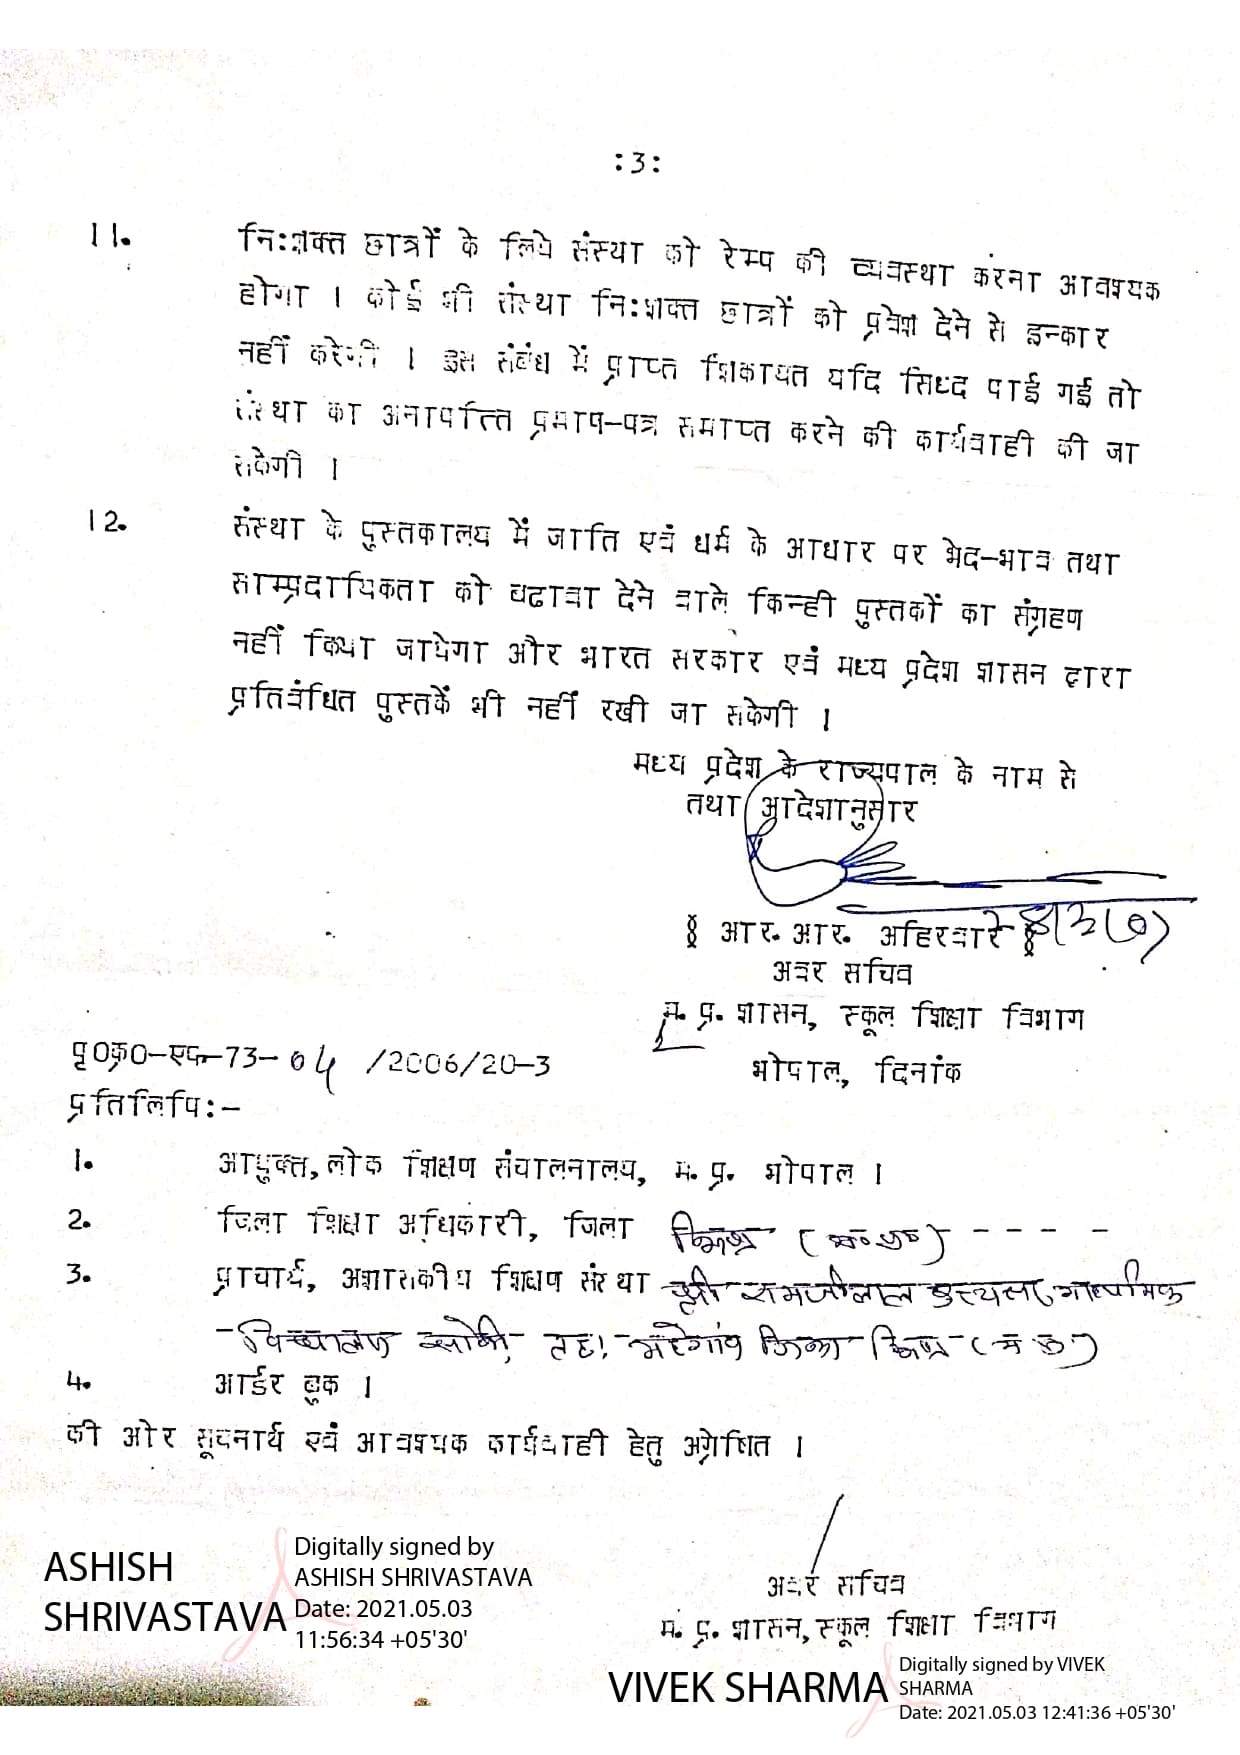 :3:
11. नि:शक्त छात्रों के लिये संस्था को रेम्प की व्यवस्था करना आवश्यक
होगा । कोई भी संस्था नि:शक्त छात्रों को प्रवेश देने से इन्कार
नहीं करेगी । इस संबंध में प्राप्त शिकायत यदि सिध्द पाई गई तो
संस्था का अनापत्ति प्रमाण-पत्र समाप्त करने की कार्यवाही की जा
सकेगी ।
12. संस्था के पुस्तकालय में जाति एवं धर्म के आधार पर भेद-भाव तथा
साम्प्रदायिकता को बढावा देने वाले किन्ही पुस्तकों का संग्रहण
नहीं किया जायेगा और भारत सरकार एवं मध्य प्रदेश शासन द्वारा
प्रतिबंधित पुस्तकें भी नहीं रखी जा सकेगी ।
मध्य प्रदेश के राज्यपाल के नाम से
तथा आदेशानुसार
आर. आर. अहिरवार
अवर सचिव
म. प्र. शासन, स्कूल शिक्षा विभाग
पृ0क्र0-एफ-73-04 /2006/20-3
भोपाल, दिनांक
प्रतिलिपि:-
1. आयुक्त, लोक शिक्षण संचालनालय, म. प्र. भोपाल ।
2. जिला शिक्षा अधिकारी, जिला भिण्ड (म0प्र0) - - - -
3. प्राचार्य, अशासकीय शिक्षण संस्था श्री रामजीलाल
विद्यालय तह. जिला भिण्ड
4. आर्डर बुक ।
की ओर सूचनार्थ एवं आवश्यक कार्यवाही हेतु अग्रेषित ।
अवर सचिव
म. प्र. शासन, स्कूल शिक्षा विभाग
ASHISH
SHRIVASTAVA
Digitally signed by
ASHISH SHRIVASTAVA
Date: 2021.05.03
11:56:34 +05'30'
VIVEK SHARMA
Digitally signed by VIVEK
SHARMA
Date: 2021.05.03 12:41:36 +05'30'